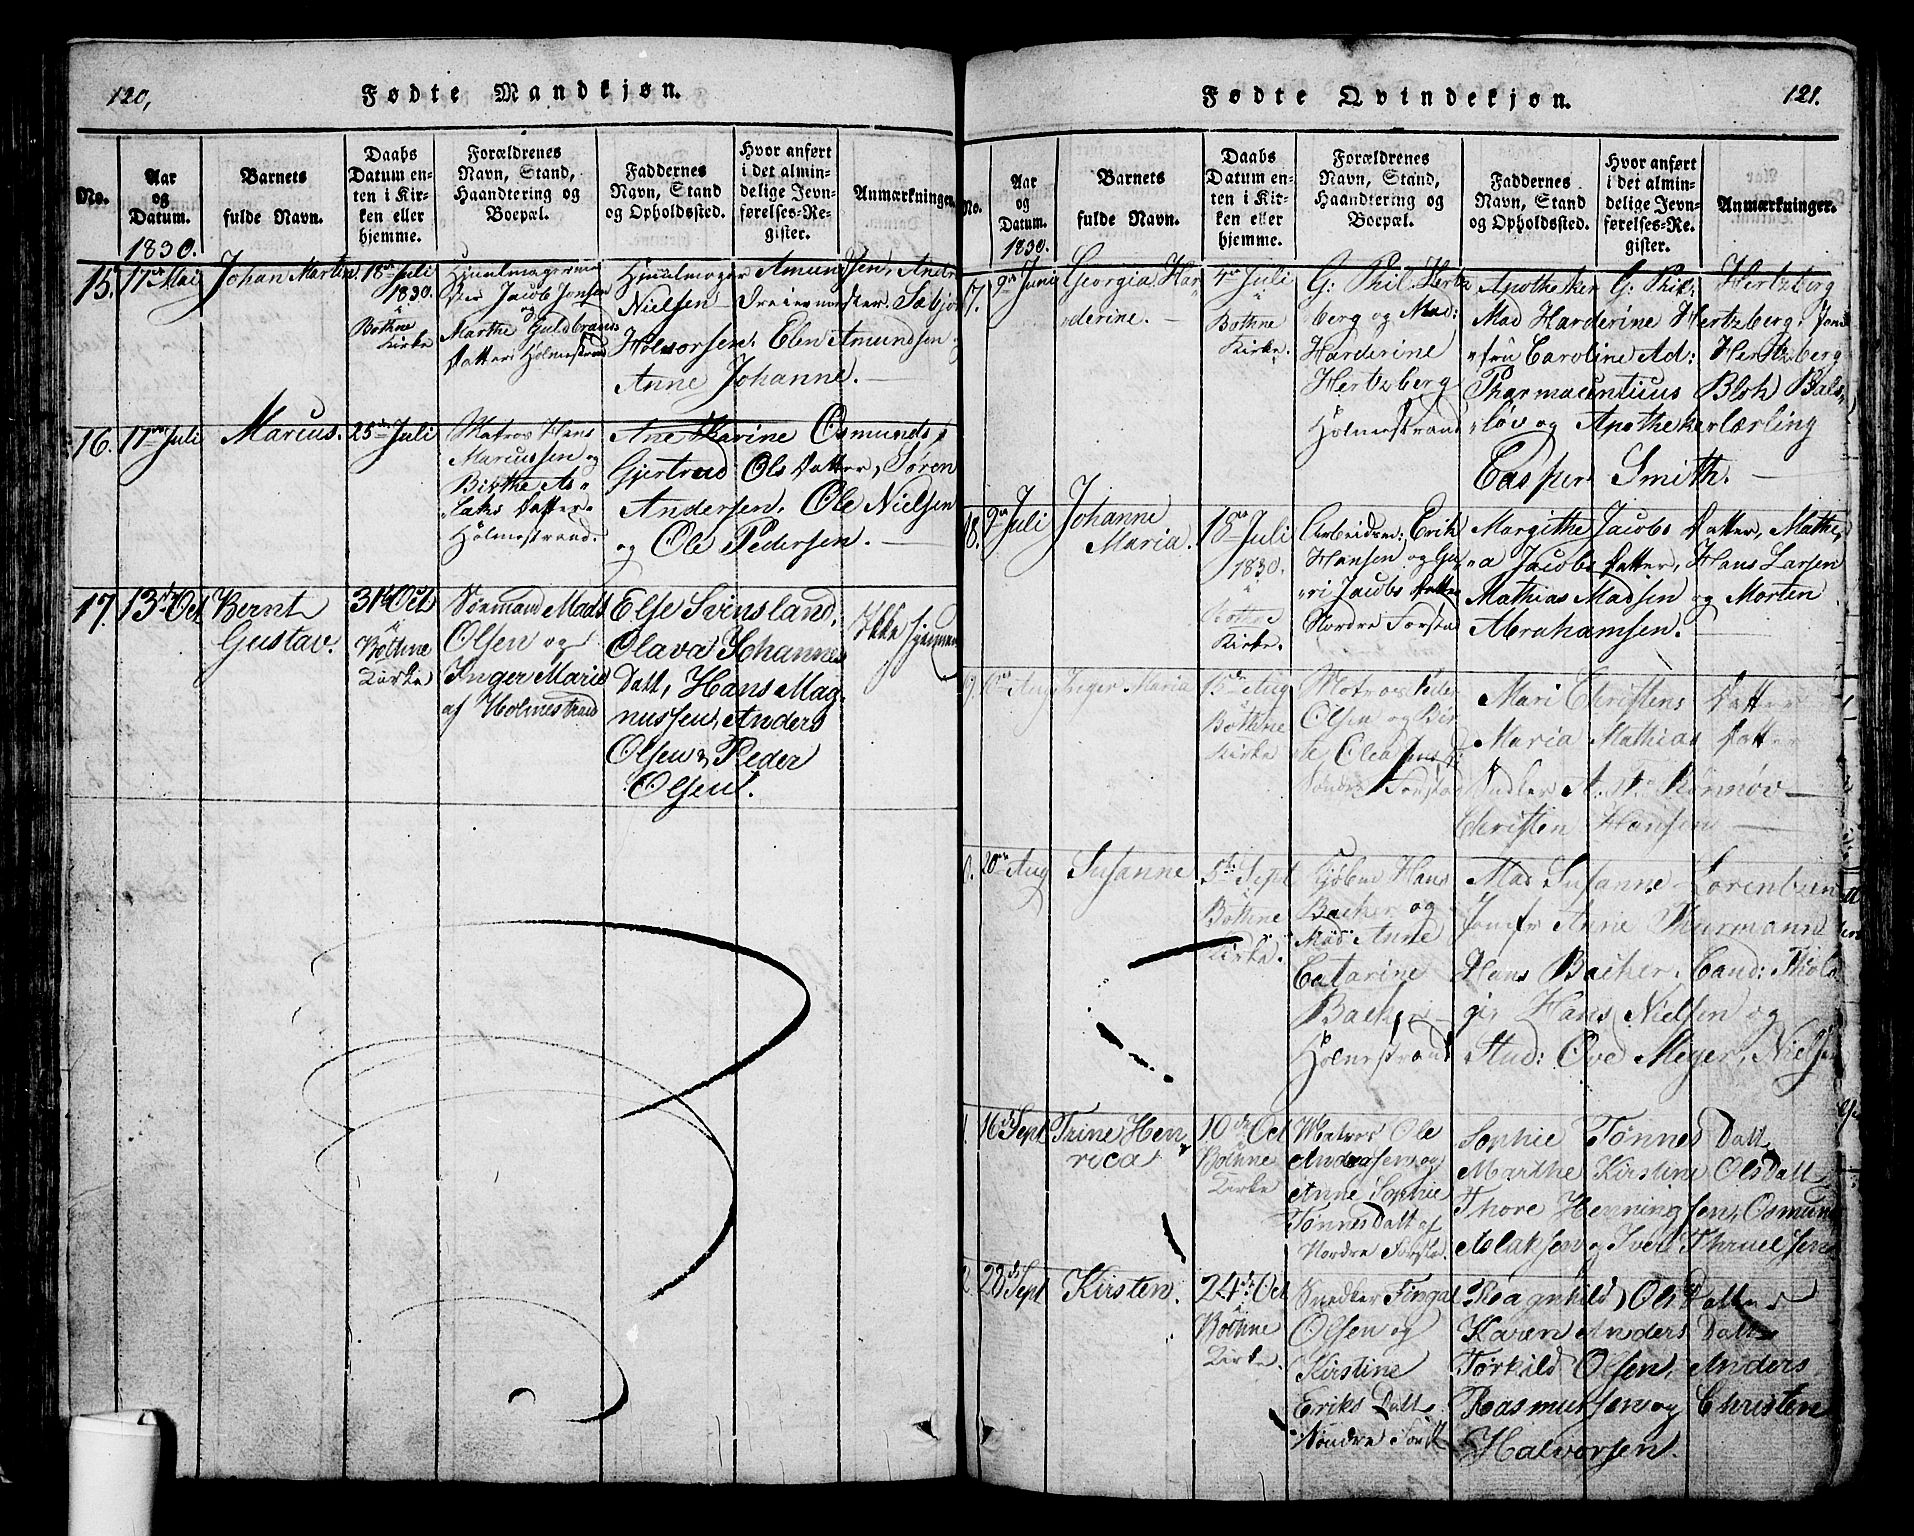 120,
Fødte Mandkjøn.
No.
Aar
og
Datum.
1830.
Barnets
fulde Navn.
Daabs
Datum en-
ten i Kir-
ken eller
hjemme.
Forældrenes
Navn, Stand,
Haandtering og
Boepæl.
Faddernes
Navn, Stand
og Opholdssted.
Hvor anført
i det almin-
delige Jevn-
førelses-Re-
gister.
Anmærkninger.
15.
17de Mai
Johan Martin.
18de Juli
1830.
i
Bothne
Kirke
Jacob Jonsen
og
Marthe Guldbrands
Datter: Holmestrand
Hjuulmager Amundsen, Andr
Nielsen Dreiersvend
Halvorsen, Elen Amundsen
Anne Johanne.
16.
17de Juli
Marcus.
25de Juli
Matros Hans
Marcussen og
Birthe As-
laks Datter
Holmestrand.
Ane Karine Osmunds,
Gjertrud Ols Datter, Søren
Andersen, Ole Nielsen
og Ole Pedersen.
17.
13de Oct
Bernt
Gustav.
31te Oct
i
Bothne
Kirke
Sømand Mads
Olsen og
Inger Marie
af Holmestrand
Else Svinsland,
Olava Johannes
Datt, Hans Mag-
nussen, Anders
Olsen & Peder
Olsen.
Ikke
121.
Fødte Qvindekjøn.
No.
Aar
og
Datum.
1830.
Barnets
fulde Navn.
Daabs
Datum en-
ten i Kir-
ken eller
hjemme.
Forældrenes
Navn, Stand,
Haandtering og
Boepæl.
Faddernes
Navn, Stand
og Opholdssted.
Hvor anført
i det almin-
delige Jevn-
førelses-Re-
gister.
Anmærkninger.
17.
9de Juni
Georgia Har-
derine.
4de Juli
i
Bothne
Kirke.
G: Phil. Hertz
berg og Mad:
Harderine
Hertzberg
Holmestrand
Apotheker G: Phil: Hertzberg
Mad Harderine Hertzberg, Jom
fru Caroline Ad: Hertzberg
Pharmaceuticus Bloh Bals-
løv og Apothekerlærling
Casper Smith.
18.
9de Juli
Johanne
Maria.
18de Juli
1830.
i
Bothne
Kirke.
Arbeidsm: Erik
Hansen og Gu-
ri Jacobs Datter
Nordre Forstad
Margithe Jacobs Datter, Mathe-
a Jacobs Datter, Hans Larsen
Mathias Madsen og Morten
Abrahamsen.
19.
Aug
Inger Maria
15de Aug
i
Bothne
Kirke
Matros Peder
Olsen og Bir-
te
Søndre Forstad
Mari Christens Datter
Maria Mathias Datter
Christen Hansen
0.
20de Aug
Susanne
5te Sept
i
Bothne
Kirke.
Kjøbm Hans
Bacher og
Mad Anne
Catarine
Bacher
Holmestrand
Mad Susanne Lorentzen
Jomfr Anne Thurmann
Hans Bacher, Cand: Theolo
gie Hans Nielsen og
Stud: Ove Meyer, Nielsen
1.
16de Sept
Trine Hen-
rica
10de Oct
i
Bothne
Kirke
Matros Ole
Andreasen og
Anne Sophie
Tønnes Datt af
Nordre Forstad
Sophie Tønnes Datt
Marthe Kirstine Olsdatt
Thore Henningsen, Osmund
Aslaksen og Iver Thruelsen
2
28de Sept
Kirsten.
24de Oct
i
Bothne
Kirke.
Snedker Fingal
Olsen og
Kirstine
Eriks Datt.
Søndre Forst
Ragnhild Ols Datter
Karen Anders Datt
Torkild Olsen, Anders
Rasmussen og Christen
Halvorsen.